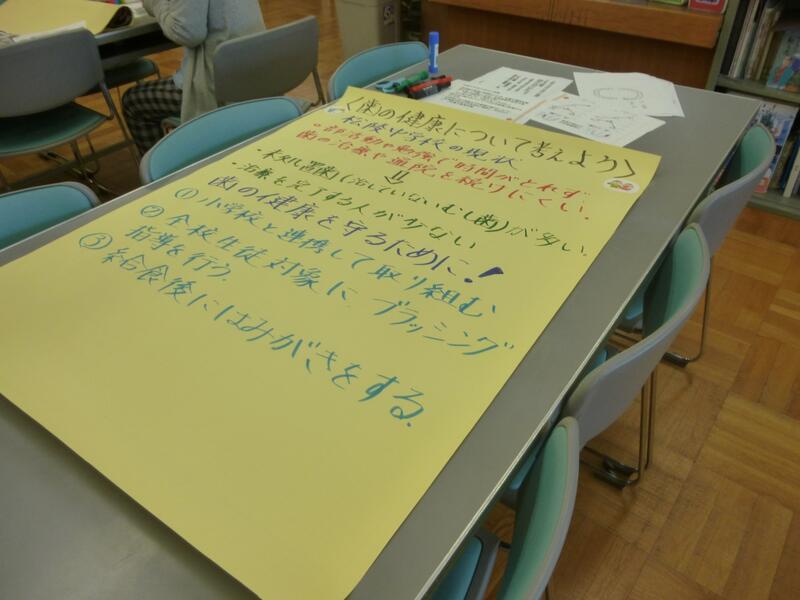 <歯の健康について考えよう>
松陵中学校の現状
・部活動や勉強で時間がとれず、
歯の治療や通院を続けにくい。
⇓
・未処置歯(治していないむし歯)が多い。
・治療を完了する人が少ない
歯の健康を守るために!
① 小学校と連携して取り組む
② 全校生徒対象に、ブラッシング
指導を行う.
③ 給食後にはみがきをする.